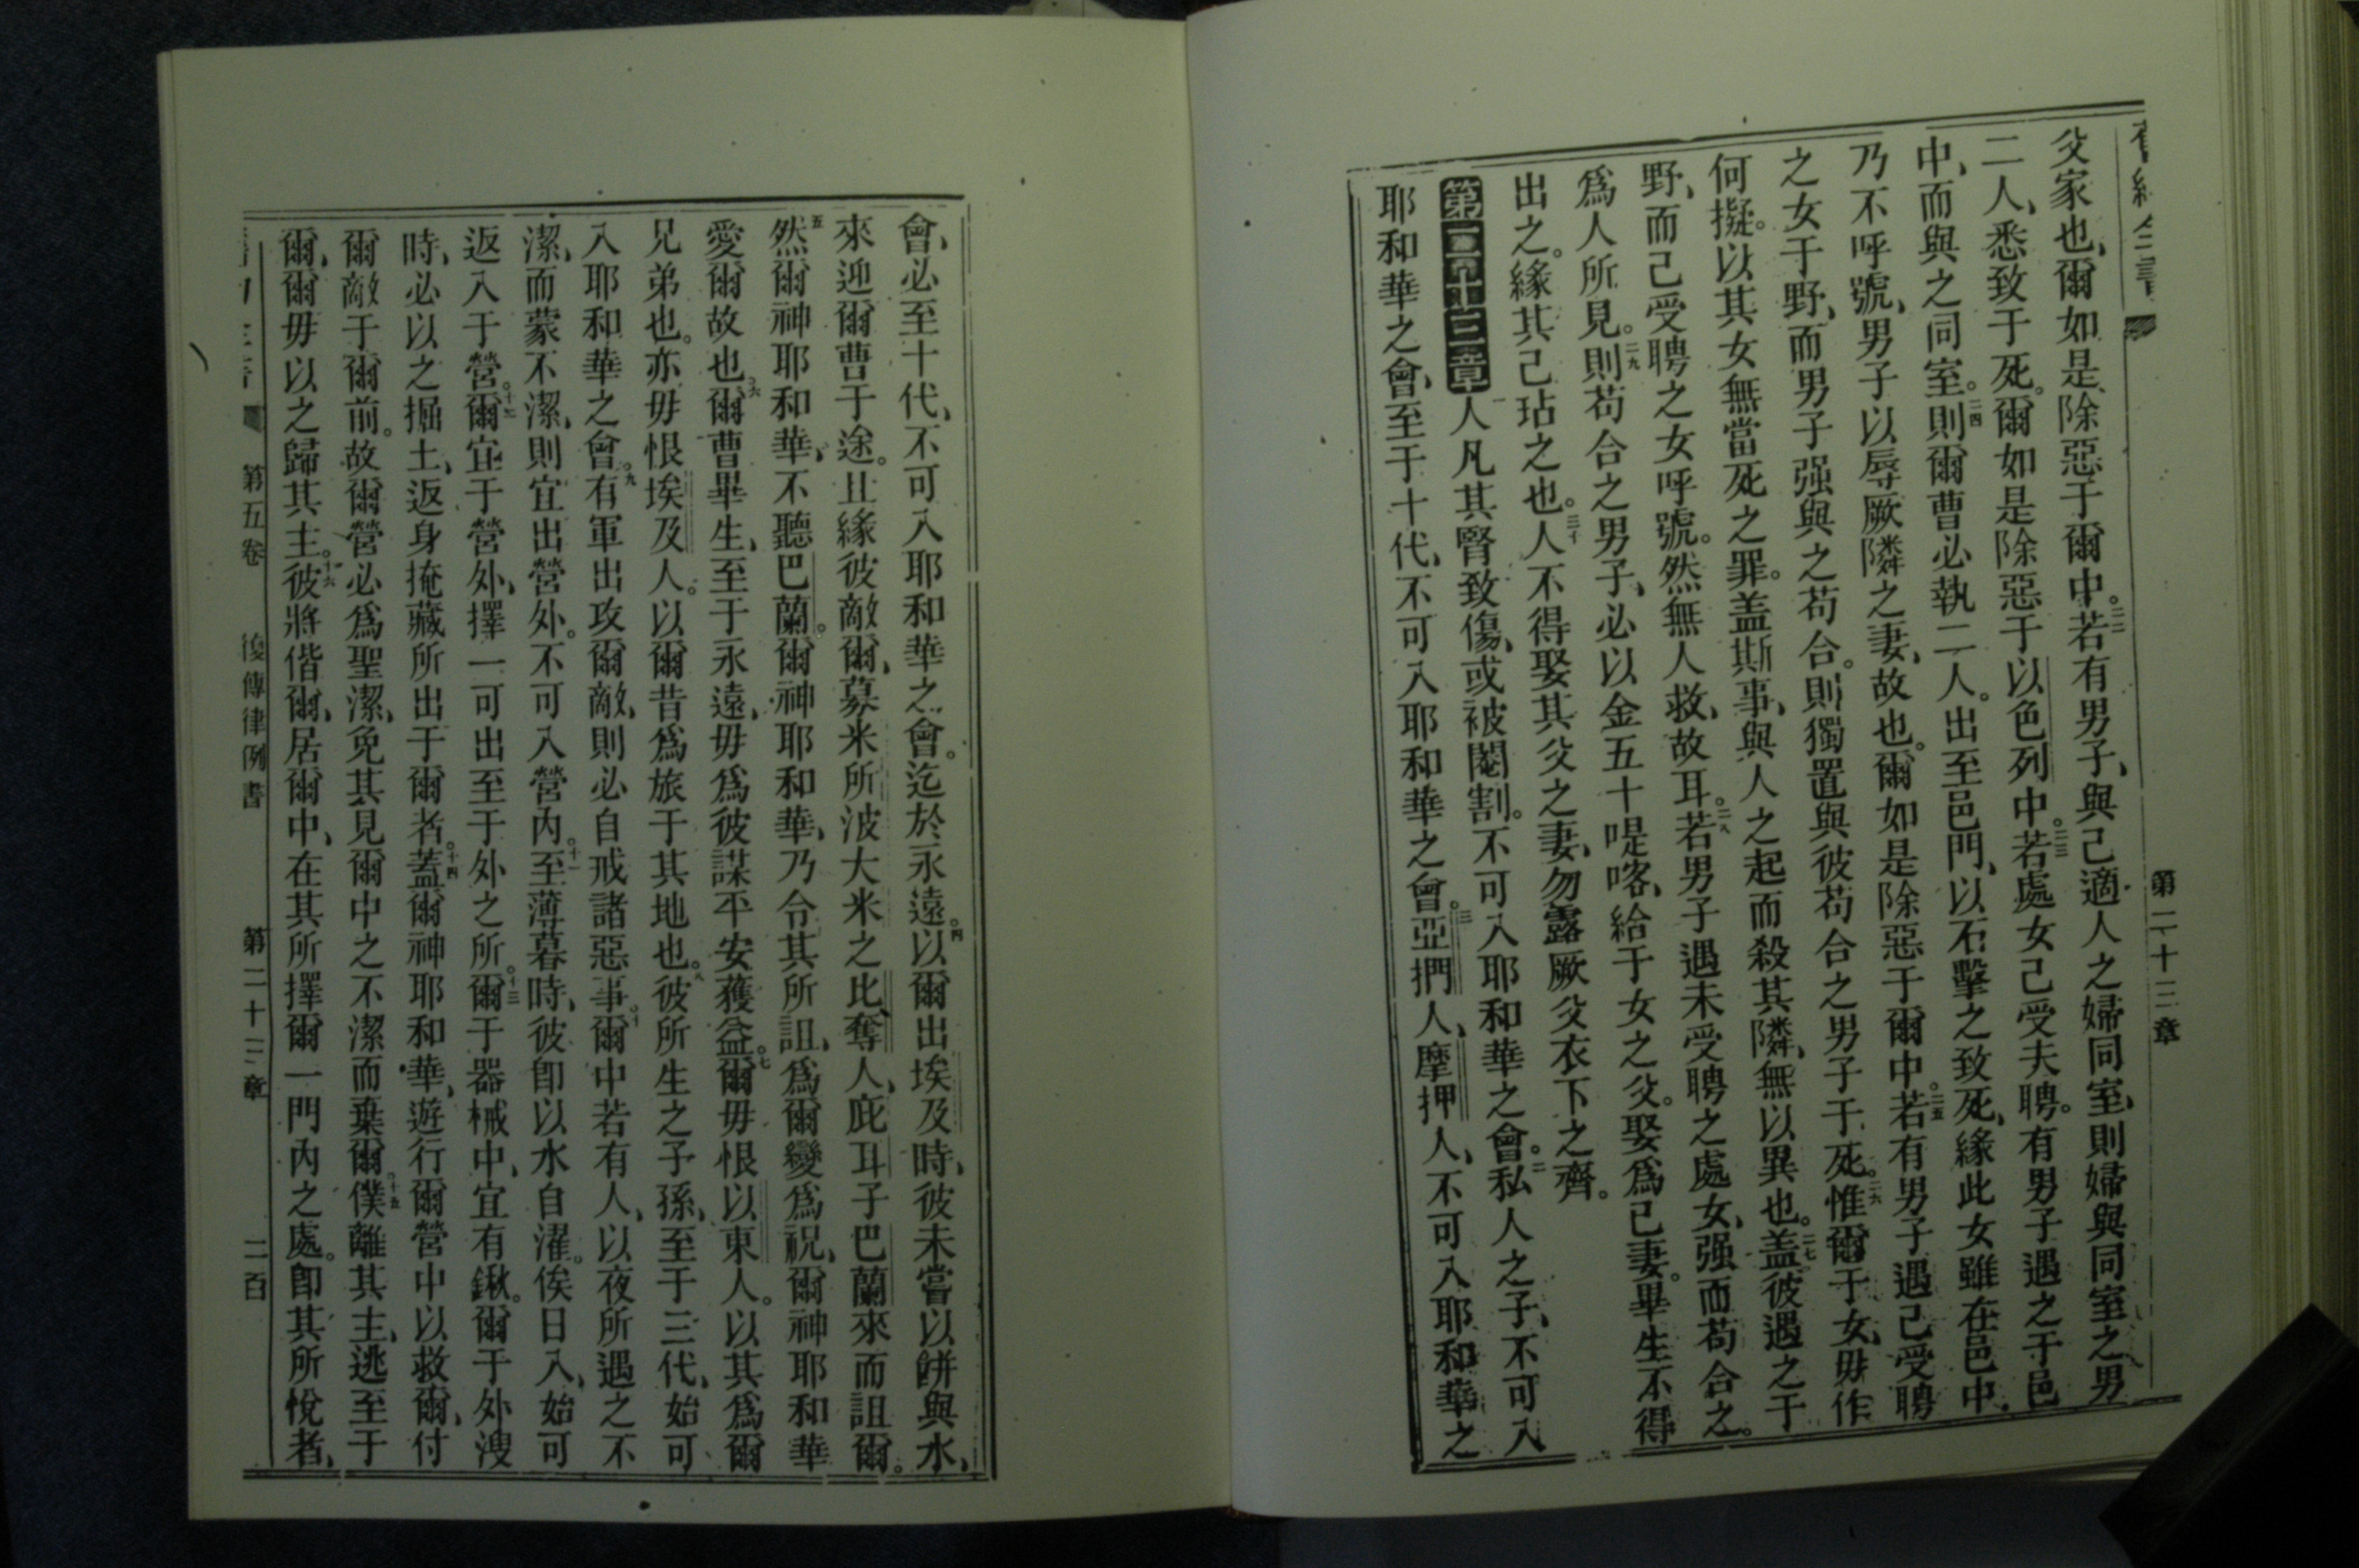 舊約全書
第二十三章
父家也、爾如是、除惡于爾中。二二若有男子、與己適人之婦同室、則婦與同室之男
二人、悉致于死。爾如是除惡于以色列中。二三若處女己受夫聘。有男子遇之于邑
中、而與之同室。二四則爾曹必執二人。出至邑門、以石擊之致死、緣此女雖在邑中、
乃不呼號、男子以辱厥隣之妻、故也。爾如是除惡于爾中。二五若有男子遇己受聘
之女于野、而男子强與之苟合。則獨置與彼苟合之男子于死。二六惟爾于女、毋作
何擬。以其女無當死之罪。盖斯事、與人之起而殺其隣、無以異也。二七盖彼遇之于
野、而己受聘之女呼號。然無人救、故耳。二八若男子遇未受聘之處女、强而苟合之。
爲人所見。二九則苟合之男子、必以金五十㖷喀、給于女之父。娶爲己妻。畢生不得
出之。緣其己玷之也。三十人不得娶其父之妻、勿露厥父衣下之齊。
第二十三章一人凡其腎致傷、或被閹割。不可入耶和華之會。二私人之子、不可入
耶和華之會、至于十代、不可入耶和華之會。三亞捫人、摩押人、不可入耶和華之
會、必至十代、不可入耶和華之會。迄於永遠。四以爾出埃及時、彼未嘗以餅與水、
來迎爾曹于途。且緣彼敵爾、募米所波大米之比奪人、庇耳子巴蘭來而詛爾。
五然爾神耶和華、不聽巴蘭。爾神耶和華、乃令其所詛、爲爾變爲祝、爾神耶和華
愛爾故也。六爾曹畢生、至于永遠、毋爲彼謀平安獲益。七爾毋恨以東人。以其爲爾
兄弟也。亦毋恨埃及人。以爾昔爲旅于其地也。八彼所生之子孫、至于三代、始可
入耶和華之會。九有軍出攻爾敵、則必自戒諸惡事。十爾中若有人、以夜所遇之不
潔、而蒙不潔、則宜出營外。不可入營內。十一至薄暮時、彼卽以水自濯。俟日入、始可
返入于營。十二爾宜于營外、擇一可出至于外之所。十三爾于器械中、宜有鍬。爾于外溲
時、必以之掘土、返身掩藏所出于爾者。十四蓋爾神耶和華、遊行爾營中以救爾、付
爾敵于爾前。故爾營必爲聖潔、免其見爾中之不潔而棄爾。十五僕離其主、逃至于
爾、爾毋以之歸其主。十六彼將偕爾、居爾中、在其所擇爾一門內之處。卽其所悅者、
第五卷　復傳律例書　第二十三章　二百